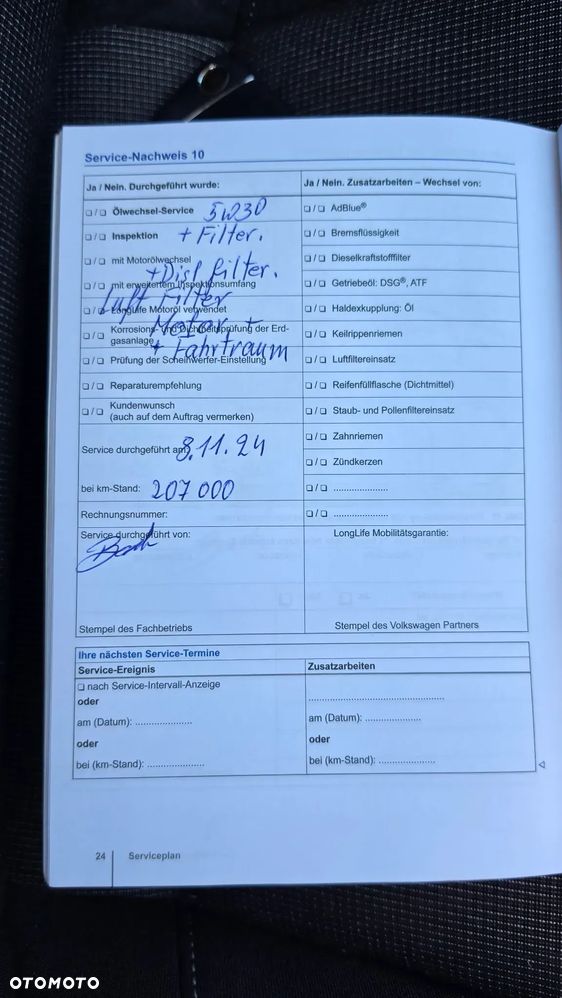 Service-Nachweis 10
Ja / Nein. Durchgeführt wurde:
Ölwechsel-Service 5W30
Inspektion + Filter.
mit Motorölwechsel
+ Disl filter.
mit erweitertem Inspektionsumfang
Luft Filter
LongLife Motoröl verwendet
Motor +
Korrosions- und Dichtheitsprüfung der Erd-
gasanlage
+ Fahrtraum
Prüfung der Scheinwerfer-Einstellung
Reparaturempfehlung
Kundenwunsch
(auch auf dem Auftrag vermerken)
Service durchgeführt am: 8.11.24
bei km-Stand: 207 000
Rechnungsnummer:
Service durchgeführt von:
Stempel des Fachbetriebs
Ja / Nein. Zusatzarbeiten – Wechsel von:
AdBlue®
Bremsflüssigkeit
Dieselkraftstofffilter
Getriebeöl: DSG®, ATF
Haldexkupplung: Öl
Keilrippenriemen
Luftfiltereinsatz
Reifenfüllflasche (Dichtmittel)
Staub- und Pollenfiltereinsatz
Zahnriemen
Zündkerzen
LongLife Mobilitätsgarantie:
Stempel des Volkswagen Partners
Ihre nächsten Service-Termine
Service-Ereignis
nach Service-Intervall-Anzeige
oder
am (Datum): .....................
oder
bei (km-Stand): .....................
Zusatzarbeiten
am (Datum): .....................
oder
bei (km-Stand): .....................
24 Serviceplan
OTOMOTO